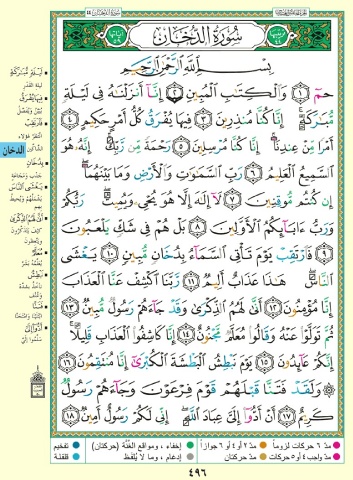 سُورَةُ الدُّخَانِ
بِسْمِ اللَّهِ الرَّحْمَٰنِ الرَّحِيمِ
حمٓ ﴿١﴾ وَالْكِتَابِ الْمُبِينِ ﴿٢﴾ إِنَّا أَنزَلْنَاهُ فِي لَيْلَةٍ
مُّبَارَكَةٍ ۚ إِنَّا كُنَّا مُنذِرِينَ ﴿٣﴾ فِيهَا يُفْرَقُ كُلُّ أَمْرٍ حَكِيمٍ ﴿٤﴾
أَمْرًا مِّنْ عِندِنَا ۚ إِنَّا كُنَّا مُرْسِلِينَ ﴿٥﴾ رَحْمَةً مِّن رَّبِّكَ ۚ إِنَّهُ هُوَ
السَّمِيعُ الْعَلِيمُ ﴿٦﴾ رَبِّ السَّمَاوَاتِ وَالْأَرْضِ وَمَا بَيْنَهُمَا ۖ
إِن كُنتُم مُّوقِنِينَ ﴿٧﴾ لَا إِلَٰهَ إِلَّا هُوَ يُحْيِي وَيُمِيتُ ۖ رَبُّكُمْ
وَرَبُّ آبَائِكُمُ الْأَوَّلِينَ ﴿٨﴾ بَلْ هُمْ فِي شَكٍّ يَلْعَبُونَ
﴿٩﴾ فَارْتَقِبْ يَوْمَ تَأْتِي السَّمَاءُ بِدُخَانٍ مُّبِينٍ ﴿١٠﴾ يَغْشَى
النَّاسَ ۖ هَٰذَا عَذَابٌ أَلِيمٌ ﴿١١﴾ رَّبَّنَا اكْشِفْ عَنَّا الْعَذَابَ
إِنَّا مُؤْمِنُونَ ﴿١٢﴾ أَنَّىٰ لَهُمُ الذِّكْرَىٰ وَقَدْ جَاءَهُمْ رَسُولٌ مُّبِينٌ ﴿١٣﴾
ثُمَّ تَوَلَّوْا عَنْهُ وَقَالُوا مُعَلَّمٌ مَّجْنُونٌ ﴿١٤﴾ إِنَّا كَاشِفُو الْعَذَابِ قَلِيلًا ۚ
إِنَّكُمْ عَائِدُونَ ﴿١٥﴾ يَوْمَ نَبْطِشُ الْبَطْشَةَ الْكُبْرَىٰ إِنَّا مُنتَقِمُونَ ﴿١٦﴾
وَلَقَدْ فَتَنَّا قَبْلَهُمْ قَوْمَ فِرْعَوْنَ وَجَاءَهُمْ رَسُولٌ
كَرِيمٌ ﴿١٧﴾ أَنْ أَدُّوا إِلَيَّ عِبَادَ اللَّهِ ۖ إِنِّي لَكُمْ رَسُولٌ أَمِينٌ ﴿١٨﴾
الدخان
مدّ ٦ حركات لزوماً
مدّ ٢ أو ٤ أو ٦ جوازاً
إخفاء، ومواقع الغُنَّة (حركتان)
تفخيم
مدّ واجب ٤ أو ٥ حركات
مدّ حركتان
إدغام، وما لا يُلفظ
قلقلة
٤٩٦